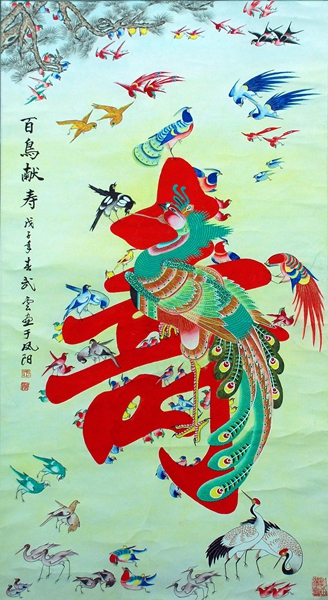 百鳥献寿
戊子年春武云画于凤阳
寿